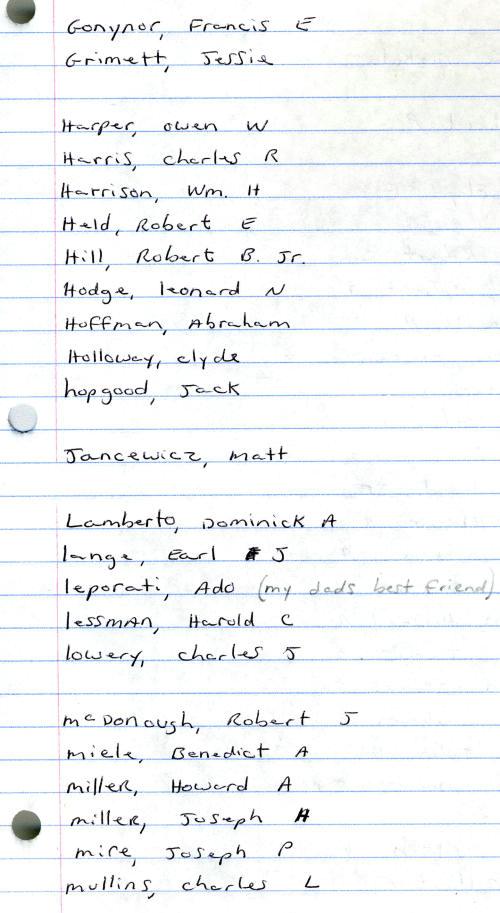 Gonynor, Francis E
Grimett, Jessie
Harper, owen W
Harris, charles R
Harrison, Wm. H
Held, Robert E
Hill, Robert B. Jr.
Hodge, leonard N
Hoffman, Abraham
Holloway, clyde
hopgood, Jack
Jancewicz, matt
Lamberto, Dominick A
lange, Earl J
leporati, Ado (my dads best friend)
lessmAn, Harold C
lowery, charles J
mcDonough, Robert J
miele, Benedict A
milleR, Howard A
milleR, Joseph A
mire, Joseph P
mullins, charles L